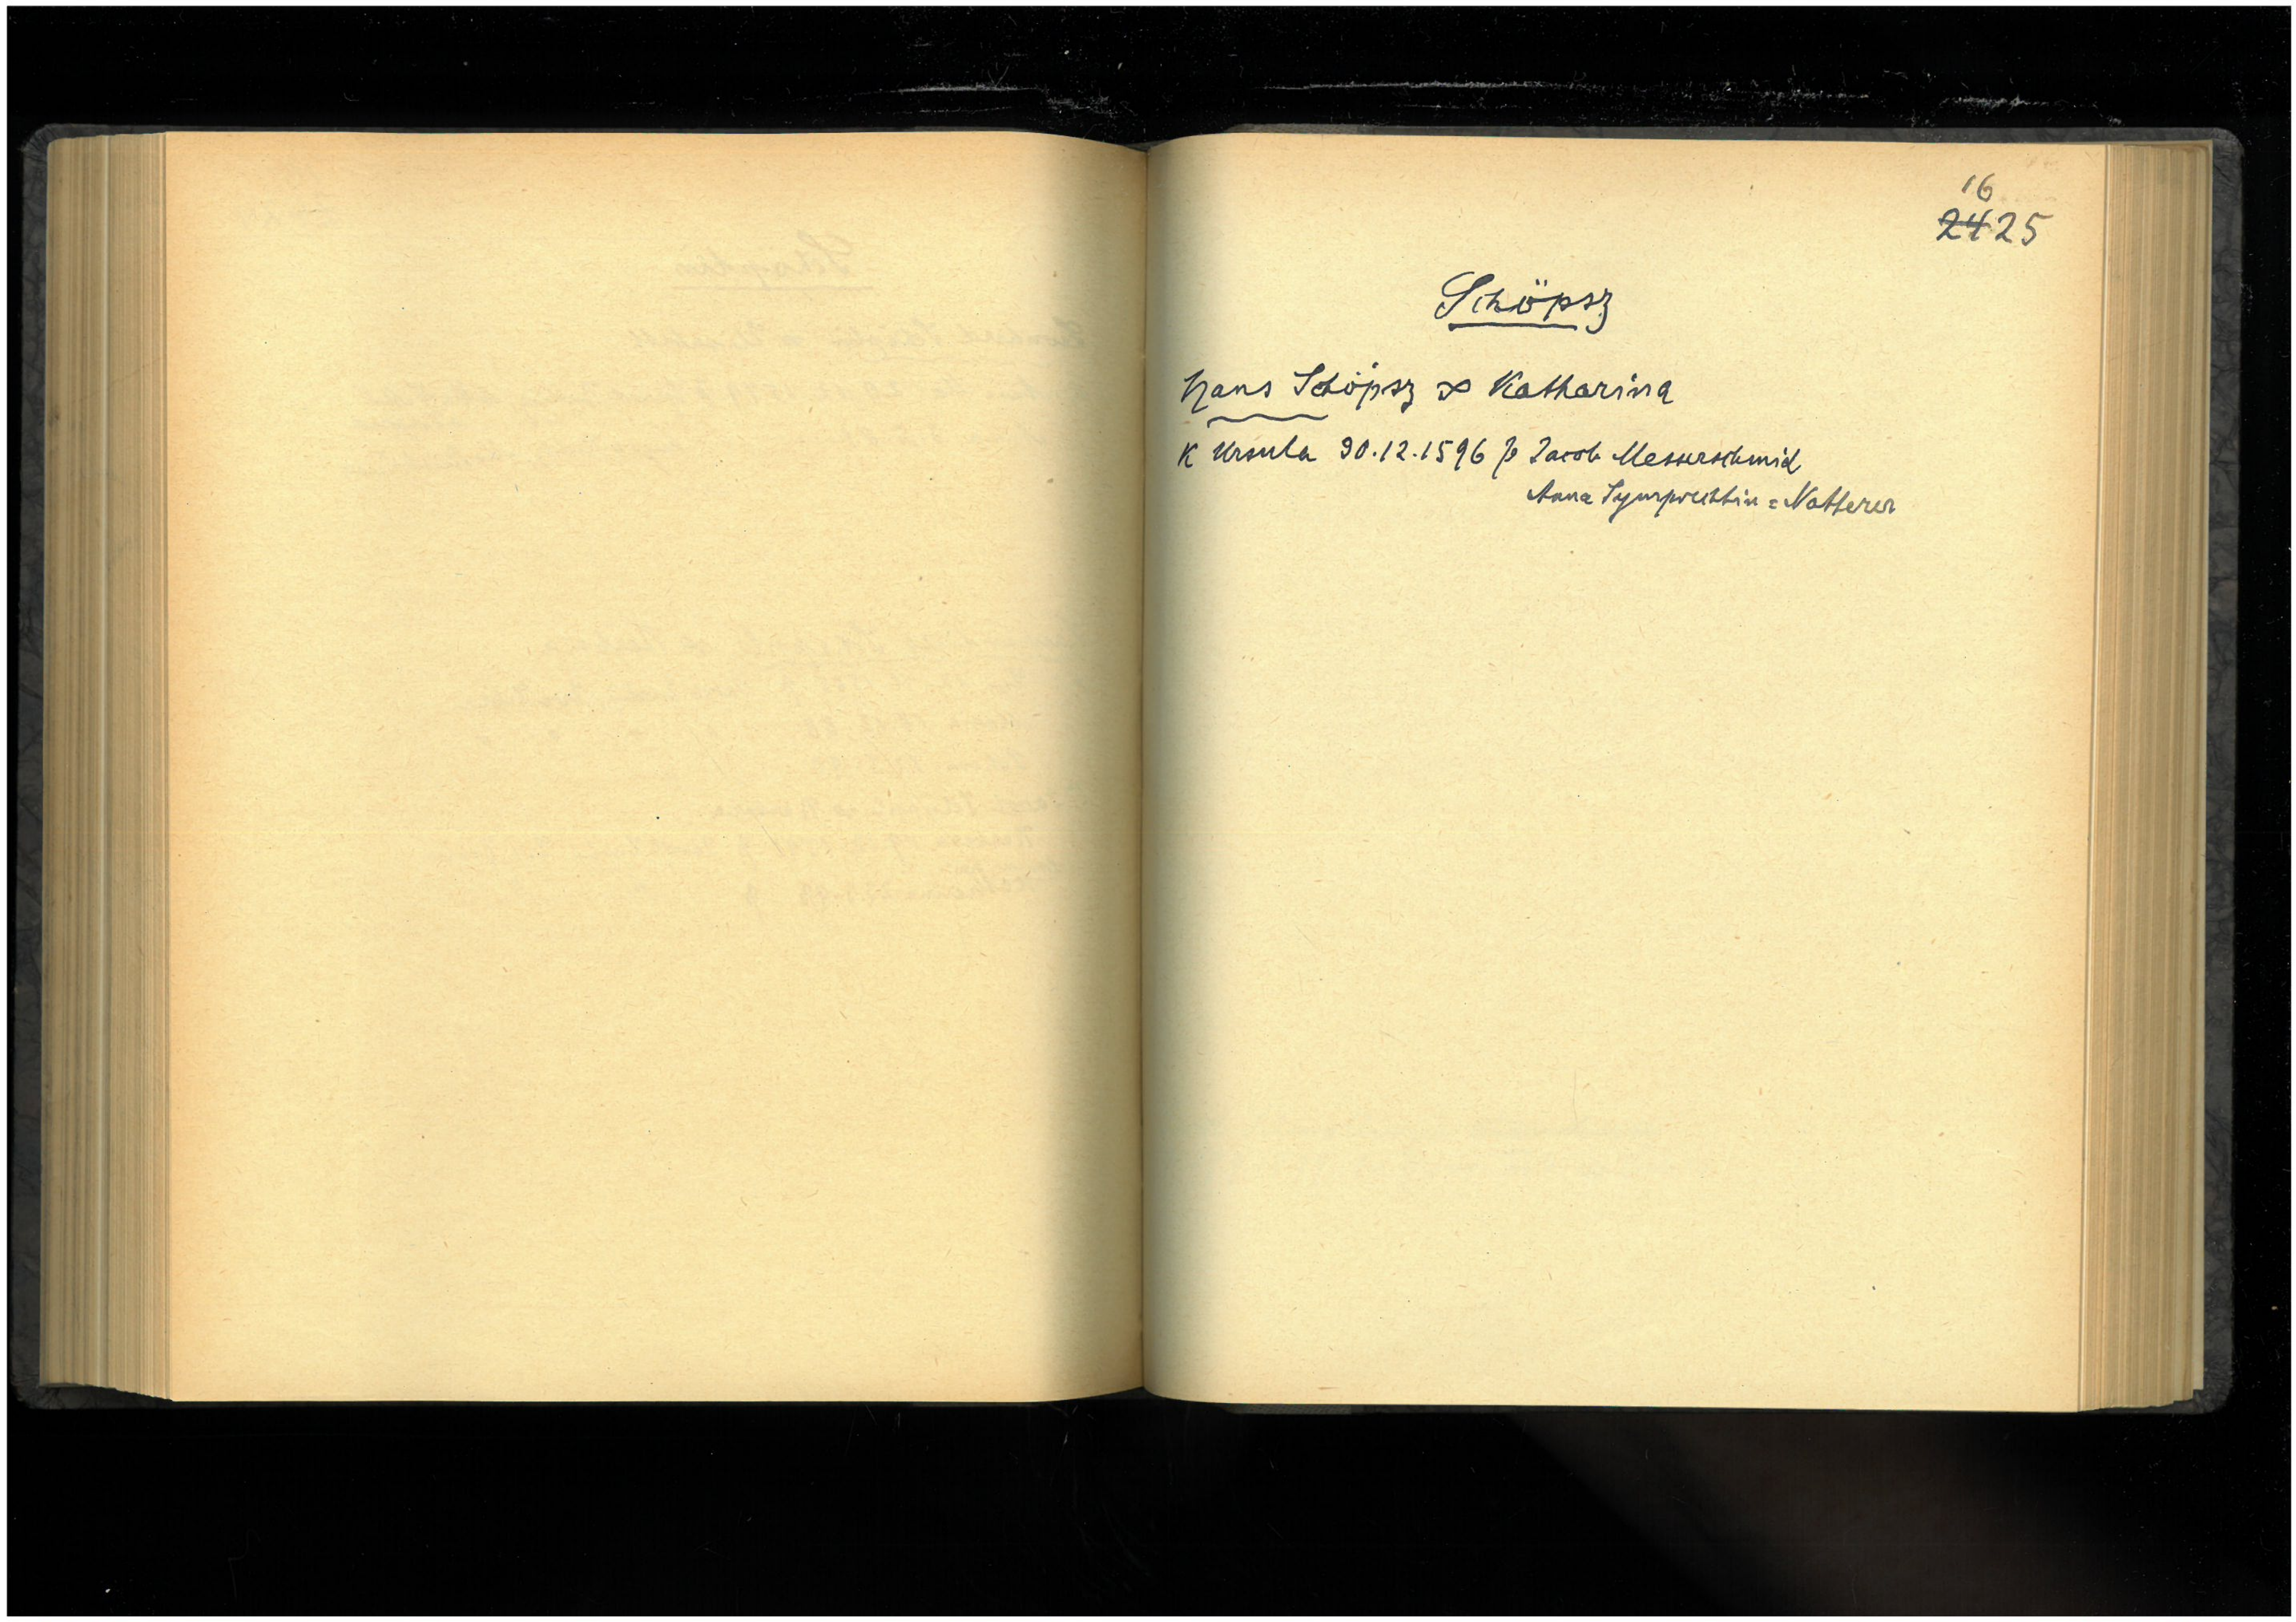 16
2425
Schöpsz
Hans Schöpsz ∞ Katharina
K Ursula 30.12.1596 p Jacob Messerschmid
Anna Symprechtin = Natterer